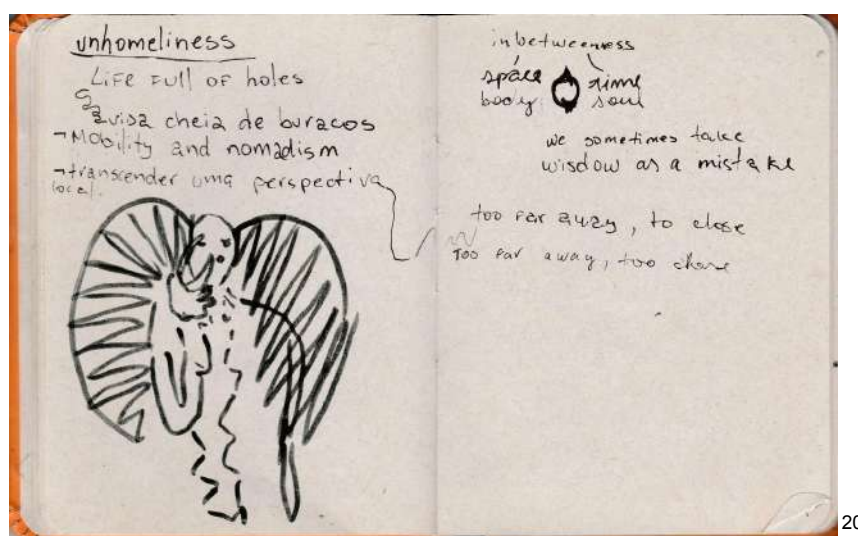 unhomeliness
Life Full of holes
vida cheia de buracos
→ Mobility and nomadism
→ transcender uma perspectiva
local.
inbetweenness
space time
body soul
we sometimes take
wisdow as a mistake
too far away, to close
Too far away, too close
20